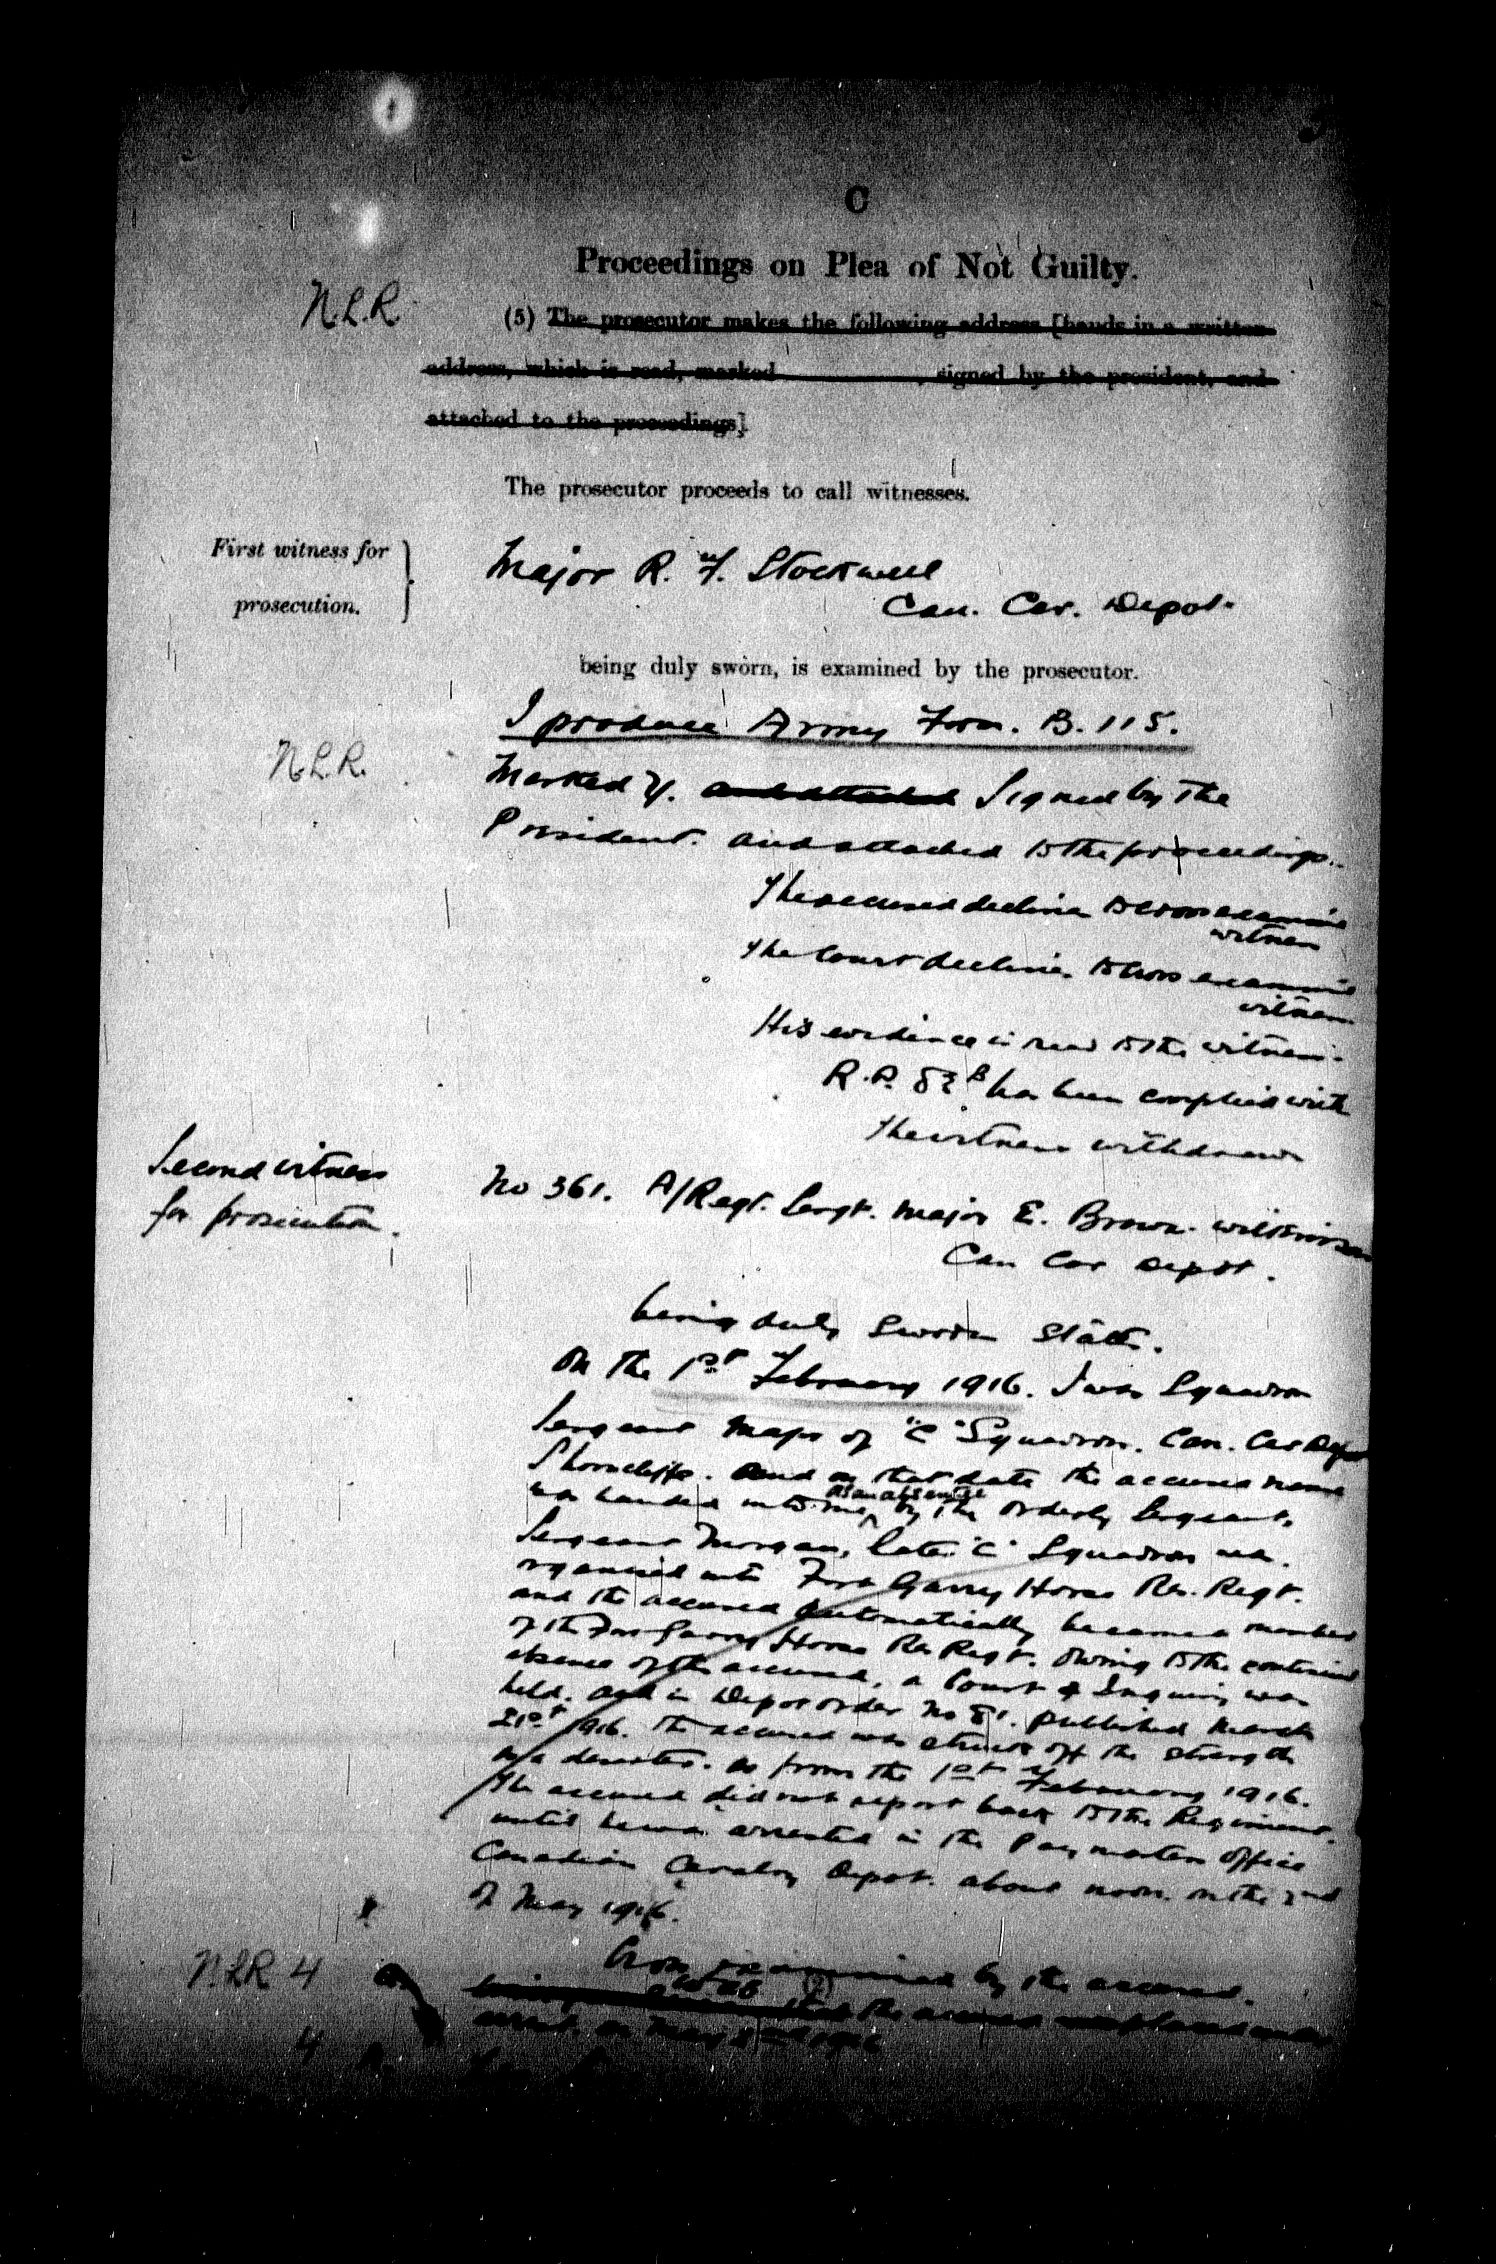 C
Proceedings on Plea of Not Guilty.
N.L.R.
(5) The prosecutor makes the following address [hands in a written
address, which is read, marked , signed by the president, and
attached to the proceedings].
The prosecutor proceeds to call witnesses.
First witness for
prosecution.
Major R. F. Stockwell
Can. Cav. Depot.
being duly sworn, is examined by the prosecutor.
I produce Army Form. B. 115.
N.L.R.
Marked Y. and attached Signed by the
President. and attached to the proceedings.
The accused declines to cross examine
witness
The Court declines to cross examine
witness
His evidence is read to the witness.
R.P. 83 B has been complied with
The witness withdraws
Second witness
for prosecution.
No 361. A/Regt. Sergt. Major E. Brown. Wilkinson
Can Cav Depot.
being duly sworn states.
On the 1st February 1916. I was Squadron
Sergeant Major of "C" Squadron. Can. Cav Depot
Shorncliffe. and on that date the accused name
was handed into me, as an absentee by the Orderly Sergeant,
Sergeant Morgan, later "C" Squadron was
organised into Fort Garry Horse Res. Regt.
and the accused automatically became a member
of the Fort Garry Horse Res Regt. Owing to the continued
absence of the accused, a Court of Inquiry was
held. and in Depot order No 81. published March
21st 1916. the accused was struck off the strength
as a deserter. as from the 1st February 1916.
The accused did not report back to the Regiment.
until he was arrested in the Pay masters office
Canadian Cavalry Depot. about noon. on the 2nd
of May 1916.
Cross examined by the accused.
N.L.R. 4
the accused was placed under
arrest. on May 2nd 1916
4